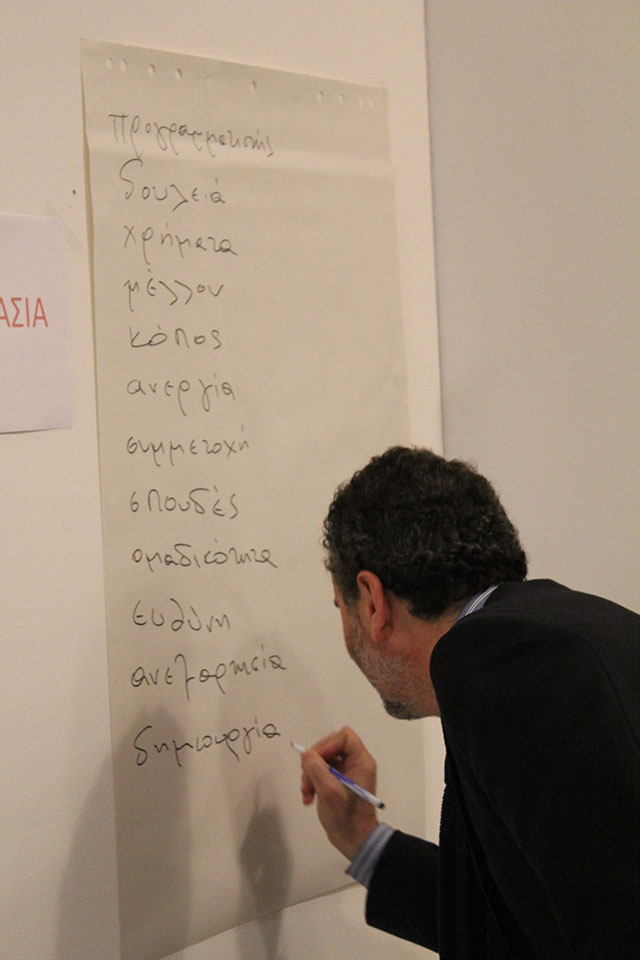 Προγραμματιστής
δουλειά
χρήματα
μέλλον
κόπος
ανεργία
συμμετοχή
σπουδές
ομαδικότητα
ευθύνη
ανεξαρτησία
δημιουργία
ΑΣΙΑ